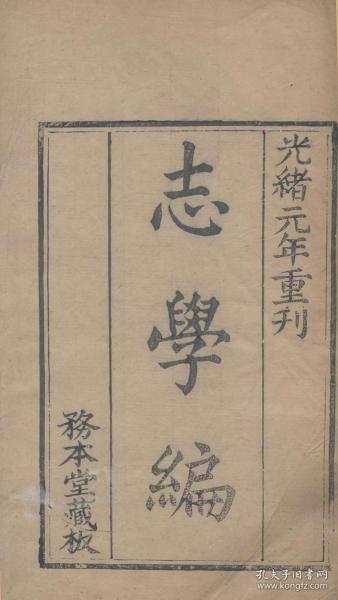 光緒元年重刊
志學編
務本堂藏板
孔夫子旧书网